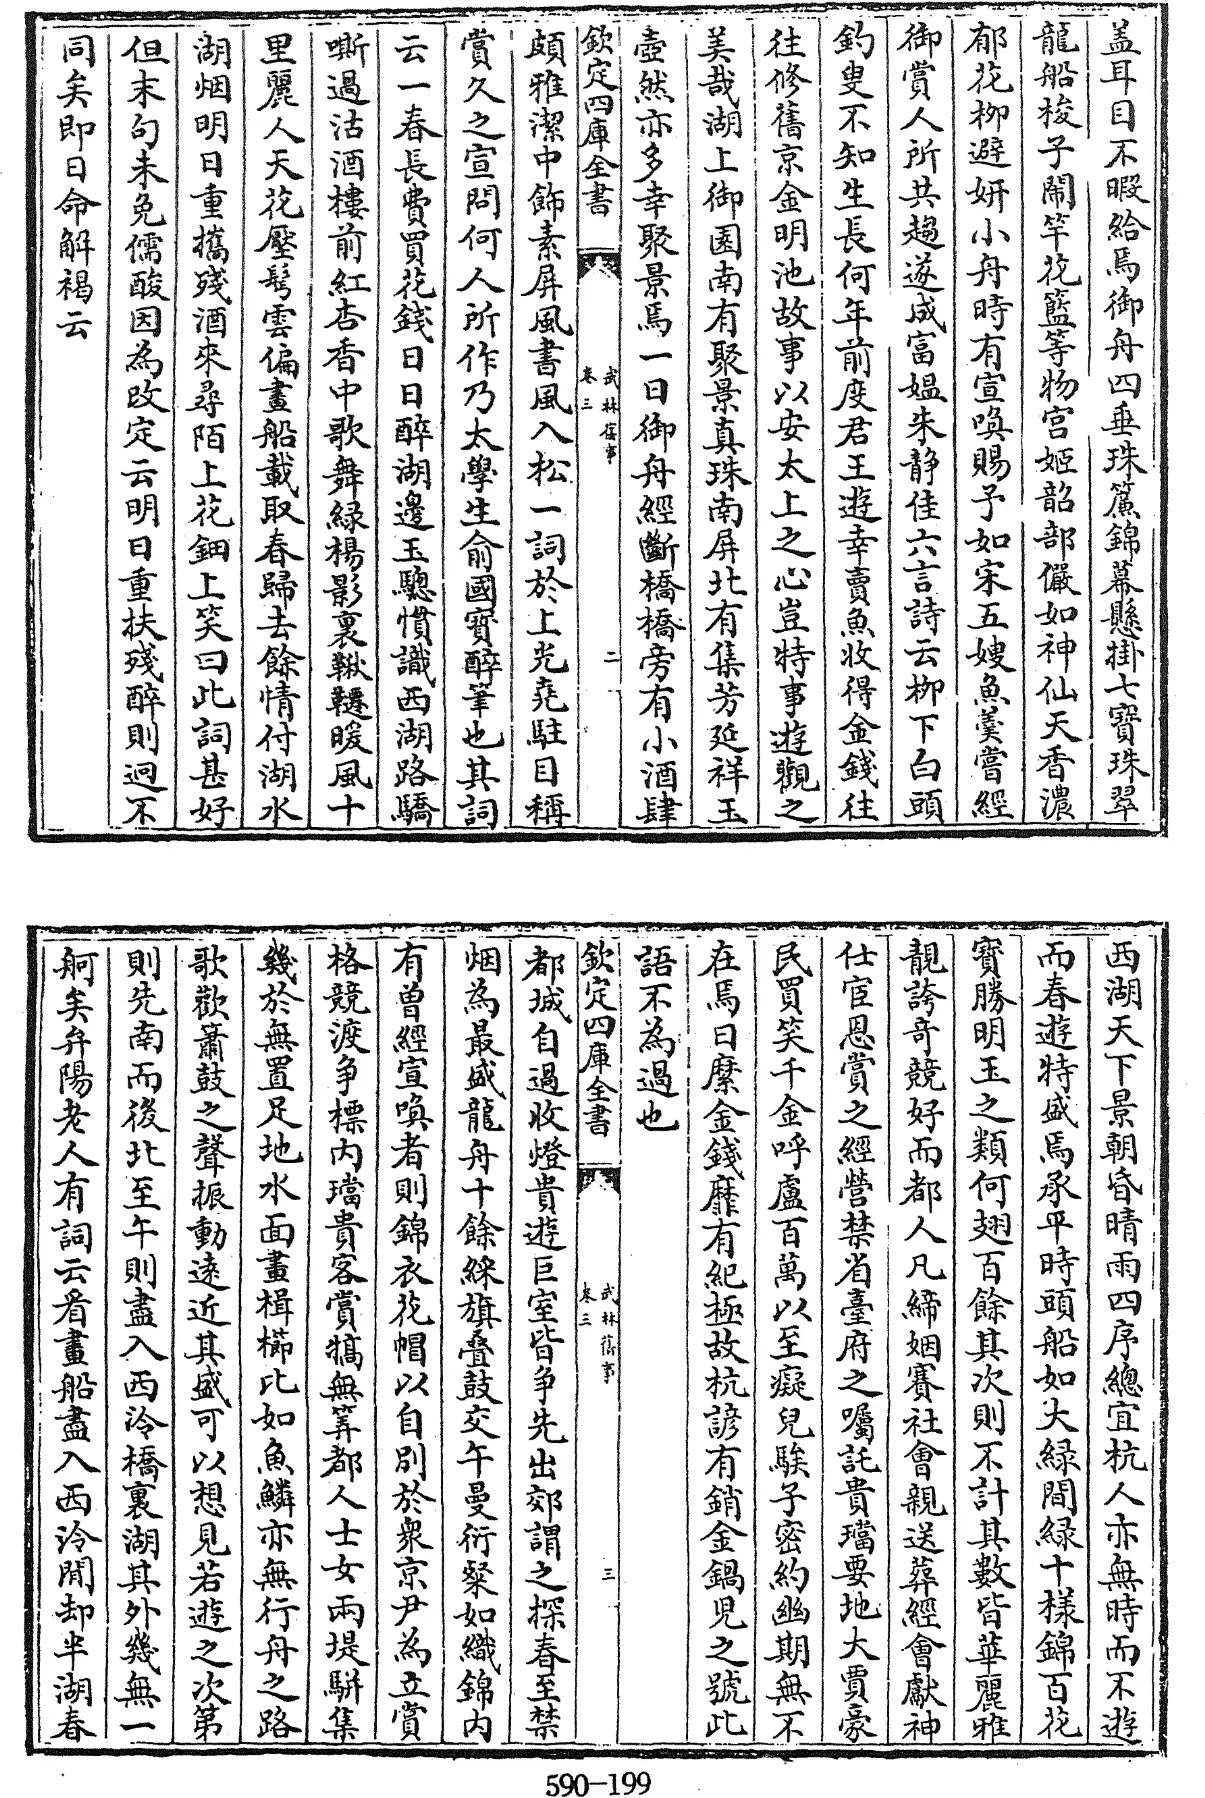 盖耳目不暇給焉御舟四垂珠簾錦幕懸掛七寶珠翠
龍船梭子閙竿花籃等物宮姬韶部儼如神仙天香濃
郁花柳避妍小舟時有宣喚賜予如宋五嫂魚羹嘗經
御賞人所共趨遂成富媼朱静佳六言詩云柳下白頭
釣叟不知生長何年前度君王遊幸賣魚收得金錢往
往修舊京金明池故事以安太上之心豈特事遊觀之
美哉湖上御園南有聚景真珠南屏北有集芳延祥玉
壺然亦多幸聚景焉一日御舟經斷橋橋旁有小酒肆
欽定四庫全書
武林舊事
卷三
二
頗雅潔中飾素屏風書風入松一詞於上光堯駐目稱
賞久之宣問何人所作乃太學生俞國寳醉筆也其詞
云一春長費買花錢日日醉湖邊玉驄慣識西湖路驕
嘶過沽酒樓前紅杏香中歌舞緑楊影裏鞦韆暖風十
里麗人天花壓鬂雲偏畫船載取春歸去餘情付湖水
湖烟明日重攜殘酒來尋陌上花鈿上笑曰此詞甚好
但末句未免儒酸因為改定云明日重扶殘醉則迥不
同矣即日命解褐云
西湖天下景朝昏晴雨四序總宜杭人亦無時而不遊
而春遊特盛焉承平時頭船如大緑間緑十様錦百花
寶勝明玉之類何翅百餘其次則不計其數皆華麗雅
靚誇奇競好而都人凡締姻賽社會親送葬經會獻神
仕宦恩賞之經營禁省臺府之囑託貴璫要地大賈豪
民買笑千金呼盧百萬以至癡兒騃子密約幽期無不
在焉日縻金錢靡有紀極故杭諺有銷金鍋兒之號此
語不為過也
欽定四庫全書
武林舊事
卷三
三
都城自過收燈貴遊巨室皆争先出郊謂之探春至禁
烟為最盛龍舟十餘綵旗疊鼓交午曼衍粲如織錦内
有曾經宣喚者則錦衣花帽以自别於衆京尹為立賞
格競渡争標内璫貴客賞犒無筭都人士女兩堤駢集
幾於無置足地水面畫楫櫛比如魚鱗亦無行舟之路
歌歡簫鼓之聲振動逺近其盛可以想見若遊之次第
則先南而後北至午則盡入西泠橋裏湖其外幾無一
舸矣弁陽老人有詞云看畫船盡入西泠閒却半湖春
590-199